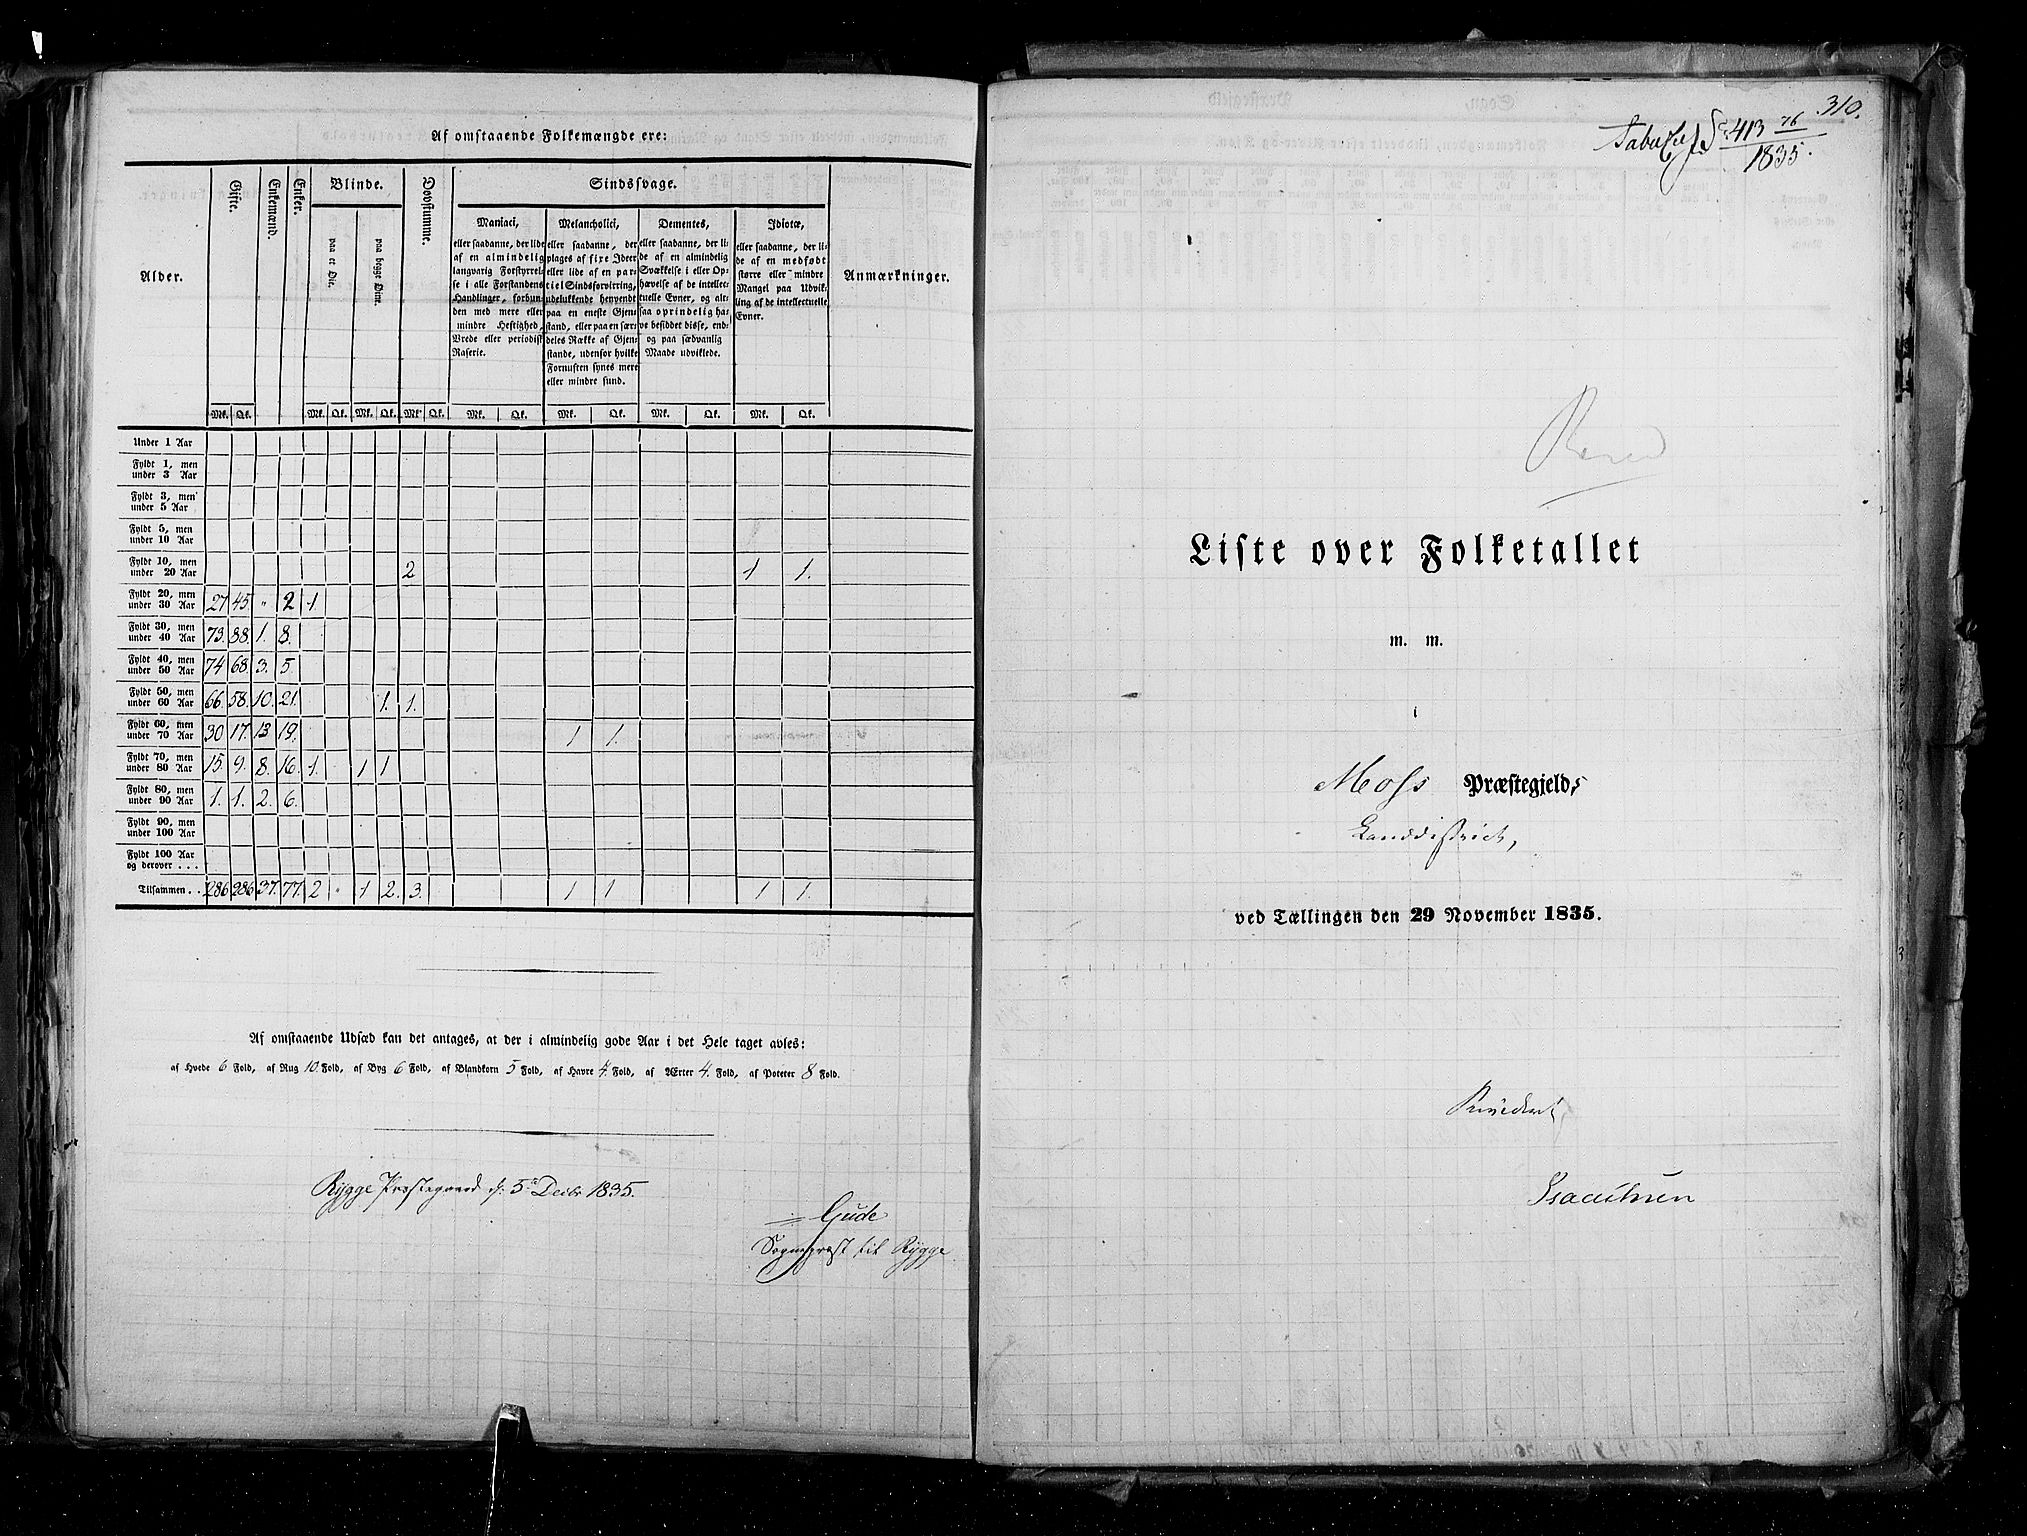 Af omstaaende Folkemængde ere:
Alder. Gifte. Enkemænd. Enker. Blinde. Døvstumme. Sindssvage. Anmærkninger.
paa et Øie. paa begge Øine.
Maniaci,
eller saadanne, der lide
af en almindelig
langvarig Forstyrrel-
se i alle Forstandens
Handlinger, forbun-
den med mere eller
mindre Heftighed,
Vrede eller periodisk
Raserie.
Melancholici,
eller saadanne, der
plages af fixe Ideer
eller lide af en par-
tiel Sindsforvirring,
udelukkende henvendt
paa en eneste Gjen-
stand, eller paa en sær-
deles Række af Gjen-
stande, udenfor hvilke
Fornuften synes mere
eller mindre sund.
Dementes,
eller saadanne, der li-
de af en almindelig
Svækkelse i eller Op-
hævelse af de intellec-
tuelle Evner, og alt-
saa oprindelig ha-
ve besiddet disse, end-
og paa sædvanlig
Maade udviklede.
Idiotæ,
eller saadanne, der li-
de af en medfødt
større eller mindre
Mangel paa Udvik-
ling af de intellectuelle
Evner.
Mk. Qk. Mk. Qk. Mk. Qk. Mk. Qk. Mk. Qk. Mk. Qk. Mk. Qk. Mk. Qk.
Under 1 Aar
Fyldt 1, men
under 3 Aar
Fyldt 3, men
under 5 Aar
Fyldt 5, men
under 10 Aar
Fyldt 10, men
under 20 Aar 2 1 1.
Fyldt 20, men
under 30 Aar 27 45. " 2 1.
Fyldt 30, men
under 40 Aar 73. 88. 1. 8.
Fyldt 40, men
under 50 Aar 74 68. 3. 5.
Fyldt 50, men
under 60 Aar 66. 58. 10. 21. 1. 1.
Fyldt 60, men
under 70 Aar 30 17. 13 19. 1 1.
Fyldt 70, men
under 80 Aar 15. 9. 8. 16. 1. 1 1
Fyldt 80, men
under 90 Aar 1. 1. 2. 6.
Fyldt 90, men
under 100 Aar
Fyldt 100 Aar
og derover . . .
Tilsammen . . 286 286 37. 77. 2 " 1 2. 3. 1 1 1 1.
Af omstaaende Udsæd kan det antages, at der i almindelig gode Aar i det Hele taget avles:
af Hvede 6 Fold, af Rug 10 Fold, af Byg 6 Fold, af Blandkorn 5 Fold, af Havre 4 Fold, af Ærter 4. Fold, af Poteter 8 Fold.
Rygge Præstegaard d. 5te Decbr 1835.
Gude
Sognepræst til Rygge
310.
413 76
1835.
Liste over Folketallet
m. m.
i
Moss Præstegjelds
Landdistrict,
ved Tællingen den 29 November 1835.
Revideret
Isaachsen